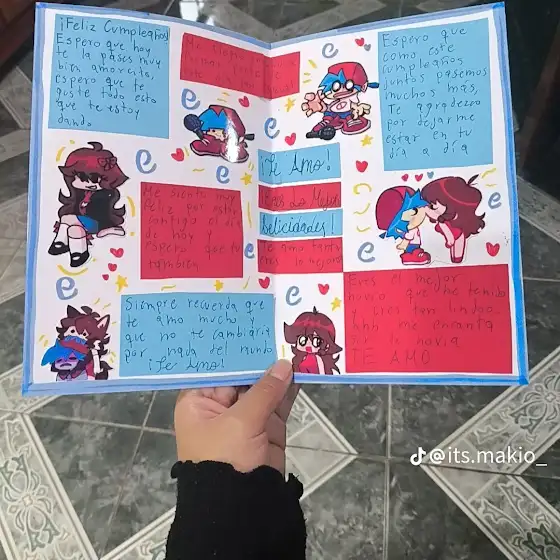 ¡Feliz Cumpleaños!
Espero que hoy
te la pases muy
bien amorcito,
espero que te
guste todo esto
que te estoy
dando
Me siento muy
feliz por estar
contigo el día
de hoy y
espero que tu
también
Siempre recuerda que
te amo mucho y
que no te cambiaría
por nada del mundo
¡Te Amo!
¡Te Amo!
Eres Lo Mejor
Felicidades!
Te amo tanto
eres lo mejor
Espero que
como este
cumpleaños
juntos pasemos
muchos más,
Te agradezco
por dejarme
estar en tu
día a día
Eres el mejor
novio que he tenido
y eres tan lindo,
me encanta
ser tu novia
TE AMO
e
e
e
e
e
e
e
e
@its.makio_